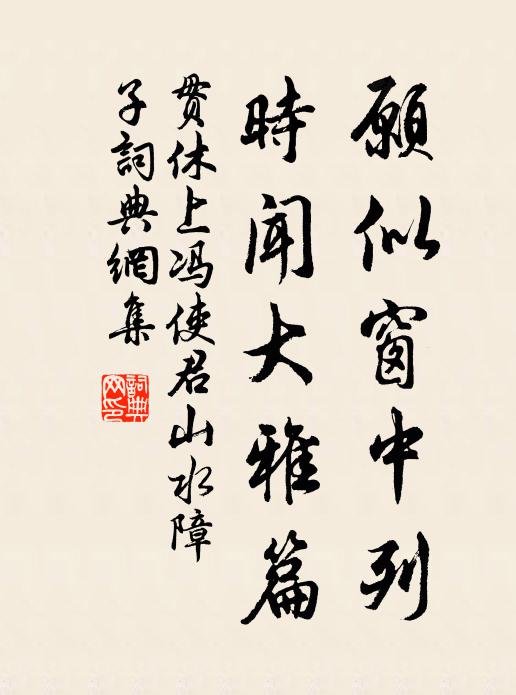 願似窗中列
時聞大雅篇
貫休上馮使君山水障
子詞典網集
詞典
网印